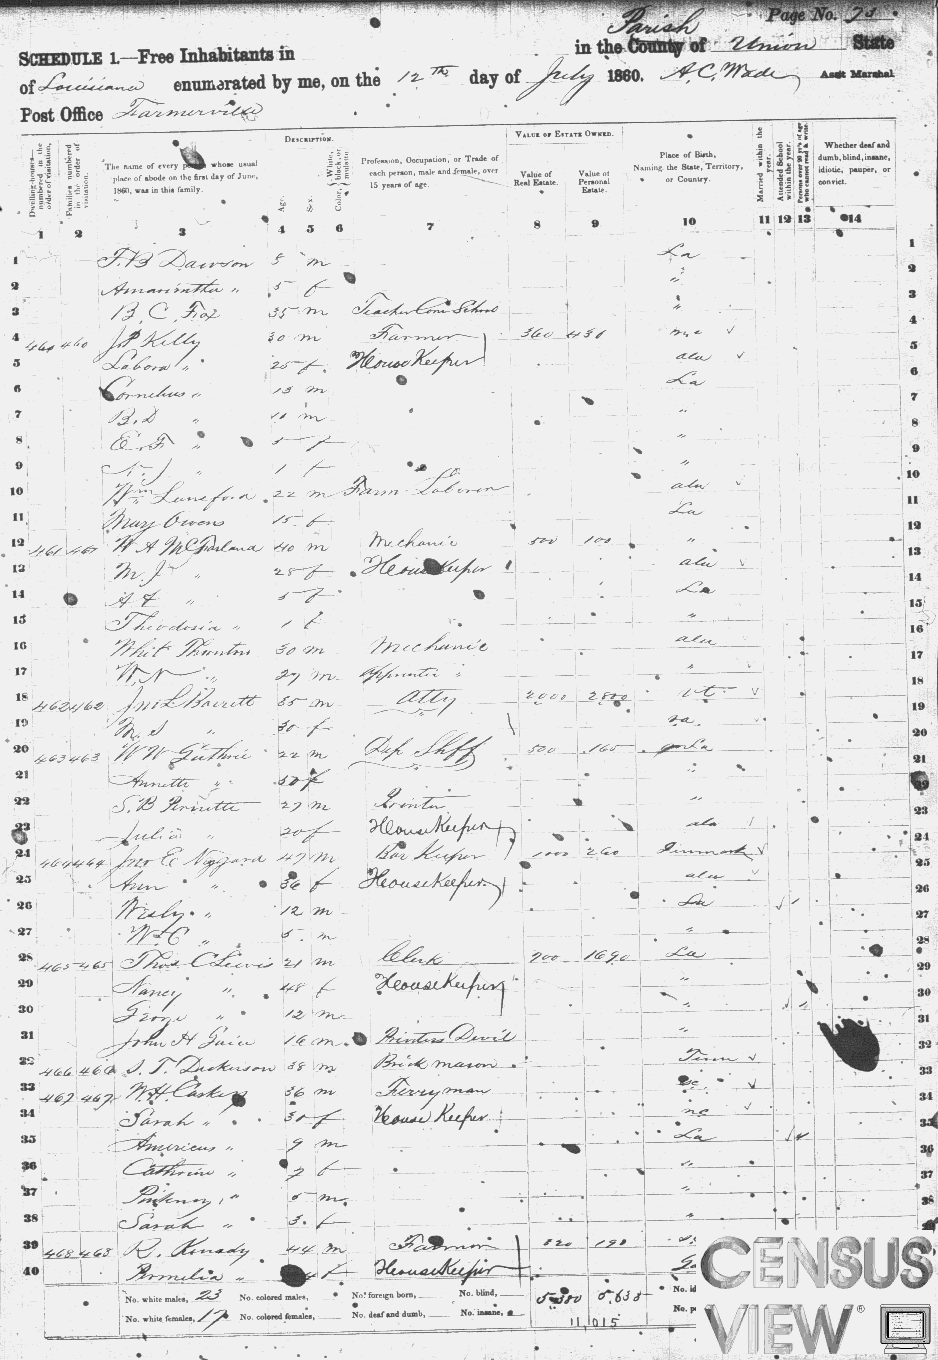 Parish
Page No. 73
SCHEDULE 1.—Free Inhabitants in in the County of Union State
of Louisiana enumerated by me, on the 12th day of July 1860. A. C. Wade Asst Marshal
Post Office Farmerville
DESCRIPTION. VALUE OF ESTATE OWNED.
Dwelling-houses—numbered in the order of visitation. Families numbered in the order of visitation. The name of every person whose usual place of abode on the first day of June, 1860, was in this family. Age. Sex. Color, White, black, or mulatto. Profession, Occupation, or Trade of each person, male and female, over 15 years of age. Value of Real Estate. Value of Personal Estate. Place of Birth, Naming the State, Territory, or Country. Married within the year. Attended School within the year. Persons over 20 y'rs of age who cannot read & write. Whether deaf and dumb, blind, insane, idiotic, pauper, or convict.
1 2 3 4 5 6 7 8 9 10 11 12 13 14
1 F. B Dawson m La 1
2 Amarintha " 5 f " 2
3 B. C. Fox 35 m Teacher Com School " 3
4 460 460 J P Killy 30 m Farmer 360 430 4
5 Labora " 25 f HouseKeeper ala 5
6 Cornelius " 13 m La 6
7 B. D " 10 m " 7
8 E. F " 5 f " 8
9 " 1 f " 9
10 Wm Lunsford 22 m Farm Laborer ala 10
11 Mary Owens 15 f La 11
12 461 461 W A McFarland 40 m Mechanic 500 100 " 12
13 M. J " 28 f HouseKeeper ala 13
14 A F " 5 f La 14
15 Theodosia " 1 f " 15
16 Whit Thornton 30 m Mechanic ala 16
17 W. N " 27 m apprentice " " 17
18 462 462 Jno L Barrett 35 m atty 2000 2800 vt 18
19 M. S " 30 f va. 19
20 463 463 W W Guthrie 22 m Dep Shff 500 165 La 20
21 Annette " f " 21
22 S. B Pernette 27 m Printer " 22
23 Julia " 20 f HouseKeeper ala 23
24 464 464 Jno E Nyggard 47 m Bar Keeper 1000 260 Denmark 24
25 Ann " 36 f HouseKeeper ala 25
26 Wesly " 12 m La 26
27 W. C " 5 m " 27
28 465 465 Thos. C Lewis 21 m Clerk 700 1690 La 28
29 Nancy " 48 f HouseKeeper " 29
30 " 12 m " 30
31 John H Guice 16 m Printers Devil " 31
32 466 466 S. T. Dickerson 38 m Brick mason Tenn 32
33 467 467 W. H Caskey 36 m Ferryman sc 33
34 Sarah " 30 f House Keeper nc 34
35 Americus " 9 m La 35
36 Catherine " 7 f " 36
37 Pinkney " 5 m " 37
38 Sarah " 3 f " 38
39 468 468 R. Kenady 44 m Farmer 320 198
40 Permelia " f HouseKeeper
No. white males, 23 No. colored males, No. foreign born, No. blind, 5,380 5,635
No. white females, 17 No. colored females, No. deaf and dumb, No. insane,
11,015
CENSUS
VIEW®